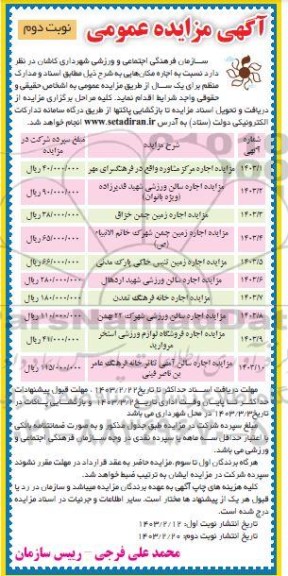 آگهی مزایده عمومی
نوبت دوم
سازمان فرهنگی اجتماعی و ورزشی شهرداری کاشان در نظر
دارد نسبت به اجاره مکان‌هایی به شرح ذیل مطابق اسناد و مدارک
منظم برای یک سال از طریق مزایده عمومی به اشخاص حقیقی و
حقوقی واجد شرایط اقدام نماید. کلیه مراحل برگزاری مزایده از
دریافت و تحویل اسناد مزایده تا بازگشایی پاکتها از طریق درگاه سامانه تدارکات
الکترونیکی دولت (ستاد) به آدرس www.setadiran.ir انجام خواهد شد.
شماره آگهی شرح مزایده مبلغ سپرده شرکت در مزایده
۱۴۰۳/۱ مزایده اجاره مرکز مشاوره واقع در فرهنگسرای مهر ۴۰/۰۰۰/۰۰۰ ریال
۱۴۰۳/۲ مزایده اجاره سالن ورزشی شهید قدیرزاده (ویژه بانوان) ۹۰/۰۰۰/۰۰۰ ریال
۱۴۰۳/۳ مزایده اجاره زمین چمن خزاق ۳۸/۰۰۰/۰۰۰ ریال
۱۴۰۳/۴ مزایده اجاره زمین چمن شهرک خاتم الانبیاء (ص) ۶۵/۰۰۰/۰۰۰ ریال
۱۴۰۳/۵ مزایده اجاره زمین تنیس خاکی پارک مدنی ۶۶/۰۰۰/۰۰۰ ریال
۱۴۰۳/۶ مزایده اجاره سالن ورزشی شهید اردهال ۲۸۰/۰۰۰/۰۰۰ ریال
۱۴۰۳/۷ مزایده اجاره خانه فرهنگ تمدن ۱۸۰/۰۰۰/۰۰۰ ریال
۱۴۰۳/۸ مزایده اجاره سالن ورزشی شهرک ۲۲ بهمن ۱۱۰/۰۰۰/۰۰۰ ریال
۱۴۰۳/۹ مزایده اجاره فروشگاه لوازم ورزشی استخر مروارید ۴۹/۰۰۰/۰۰۰ ریال
۱۴۰۳/۱۰ مزایده اجاره سالن آمفی تئاتر خانه فرهنگ عامر بن ناصر فینی ۱۲۵/۰۰۰/۰۰۰ ریال
مهلت دریافت اسناد حداکثر تا تاریخ ۱۴۰۳/۲/۲۲ ، مهلت قبول پیشنهادات
تا پایان وقت اداری تاریخ ۱۴۰۳/۳/۲ و بازگشایی پاکات در
تاریخ ۱۴۰۳/۳/۳ در محل شهرداری می باشد
مبلغ سپرده شرکت در مزایده طبق جدول مذکور و به صورت ضمانتنامه بانکی
با اعتبار حداقل سه ماهه یا سپرده نقدی در وجه سازمان فرهنگی اجتماعی و
ورزشی می باشد.
هرگاه برندگان اول تا سوم مزایده حاضر به عقد قرارداد در مهلت مقرر نشوند
سپرده شرکت در مزایده ایشان به ترتیب ضبط خواهد شد.
کلیه هزینه های چاپ آگهی به عهده برندگان مزایده میباشد و سازمان در رد یا
قبول هر یک از پیشنهاد ها مختار است. سایر اطلاعات و جزئیات در اسناد مزایده
درج شده است.
تاریخ انتشار نوبت اول: ۱۴۰۳/۲/۱۲
تاریخ انتشار نوبت دوم: ۱۴۰۳/۲/۲۰
محمد علی فرجی - رییس سازمان